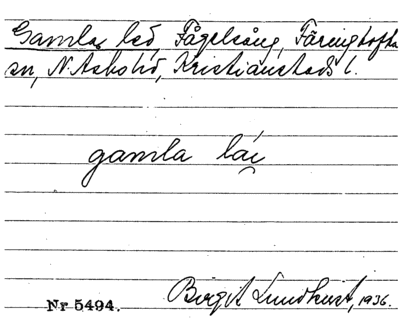 Gamla led, Fågelsång, Färingtofta
sn, N. Åsbo hd, Kristianstads l.
gamla
Nr 5494. Birgit Lundkvist, 1936.